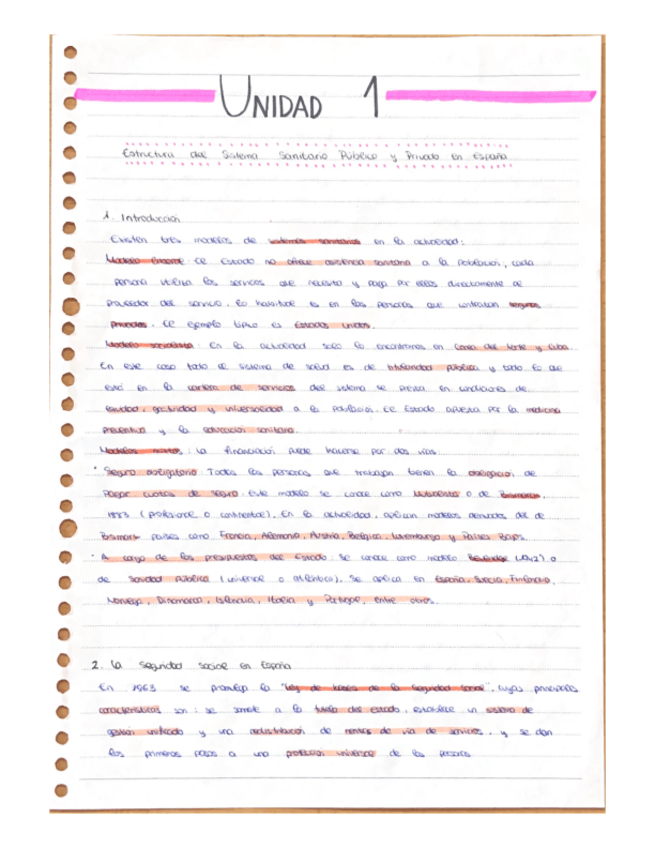 UNIDAD 1
Estructura del Sistema Sanitario Público y Privado en España
1. Introducción
Existen tres modelos de sistemas sanitarios en la actualidad:
Modelo liberal: El Estado no ofrece asistencia sanitaria a la población, cada
persona utiliza los servicios que necesita y paga por ellos directamente al
proveedor del servicio. Lo habitual es en las personas que contratan seguros
privados. El ejemplo típico es Estados Unidos.
Modelo socialista: En la actualidad solo lo encontramos en Corea del Norte y Cuba.
En este caso todo el sistema de salud es de titularidad pública y todo lo que
está en la cartera de servicios del sistema se presta en condiciones de
equidad, gratuidad y universalidad a la población. El Estado apuesta por la medicina
preventiva y la educación sanitaria.
Modelos mixtos: La financiación puede hacerse por dos vías:
· Seguro obligatorio: Todas las personas que trabajan tienen la obligación de
pagar cuotas de seguro. Este modelo se conoce como o de Bismarck,
1883 (profesional o continental). En la actualidad, aplican modelos derivados del de
Bismarck países como Francia, Alemania, Austria, Bélgica, Luxemburgo y Países Bajos.
· A cargo de los presupuestos del Estado: Se conoce como modelo Beveridge (1942) o
de Sanidad Pública (universal o atlántico). Se aplica en España, Suecia, Finlandia,
Noruega, Dinamarca, Islandia, Italia y Portugal, entre otros.
2. La Seguridad Social en España
En 1963 se promulga la "Ley de bases de la Seguridad Social", cuyas principales
características son: se somete a la tutela del estado, establece un sistema de
gestión unificado y una redistribución de rentas de vía de servicios, y se dan
los primeros pasos a una protección universal de las personas